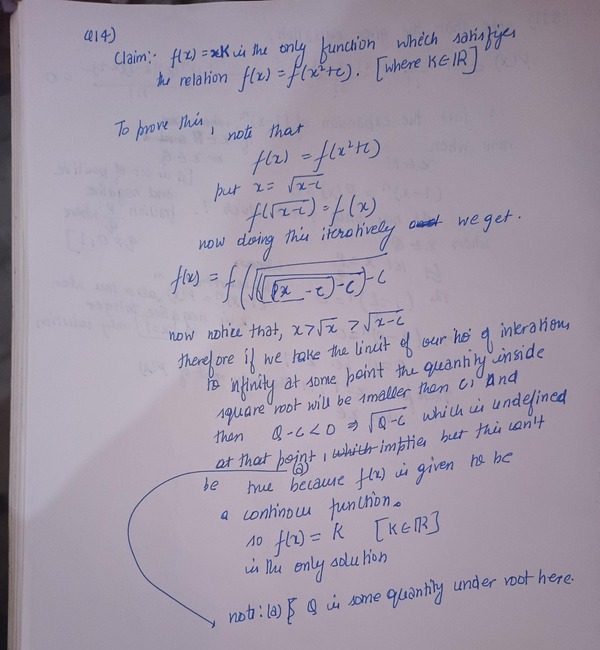 Q14)
Claim:- f(x) = xK is the only function which satisfiyes
the relation f(x) = f(x²+c). [where K∈IR]
To prove this, note that
f(x) = f(x²+c)
put x = √x-c
f(√x-c) = f(x)
now doing this iteratively we get.
f(x) = f(√√√(x - c)-c)-c
now notice that, x > √x > √x-c
therefore if we take the limit of our no of interations
to infinity at some point the quantity inside
square root will be smaller than c, And
then Q-c<0 ⇒ √Q-c which is undefined
at that point, which implies but this can't
(a)
be true because f(x) is given to be
a continous function.
so f(x) = K [K∈IR]
is the only solution
note:(a) { Q is some quantity under root here.